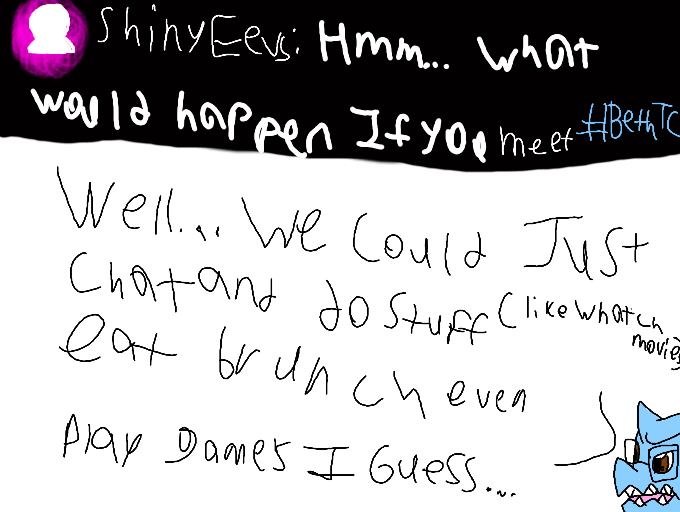 ShinyEevs: Hmm... what
would happen If you meet #BethTC
Well... We Could Just
Chat and do stuff (like whatch
movies
eat brunch even
Play Games I Guess...